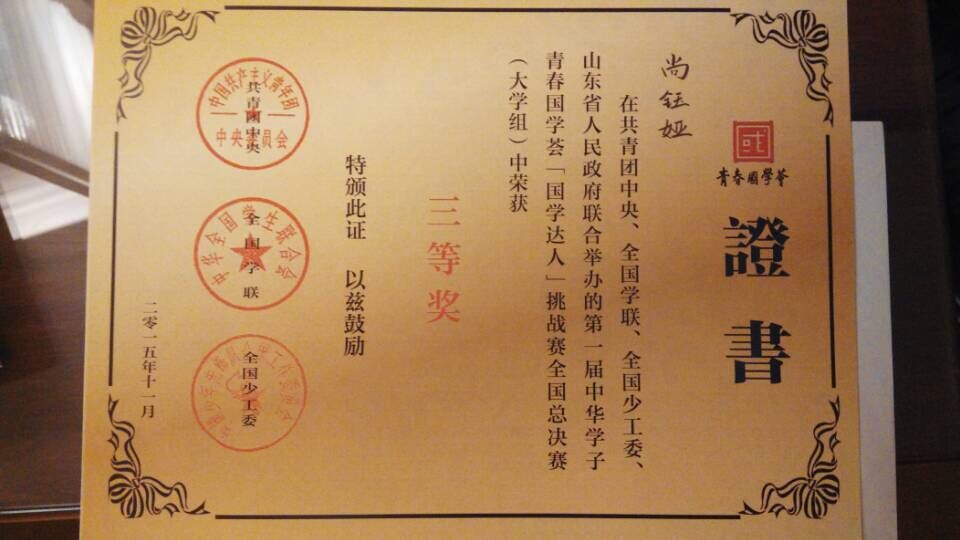 國
青春國學薈
證書
尚钰娅
在共青团中央、全国学联、全国少工委、
山东省人民政府联合举办的第一届中华学子
青春国学荟「国学达人」挑战赛全国总决赛
（大学组）中荣获
三等奖
特颁此证 以兹鼓励
中国共产主义青年团
中央委员会
共青团中央
中华全国学生联合会
全国学联
全国少工委
二零一五年十一月